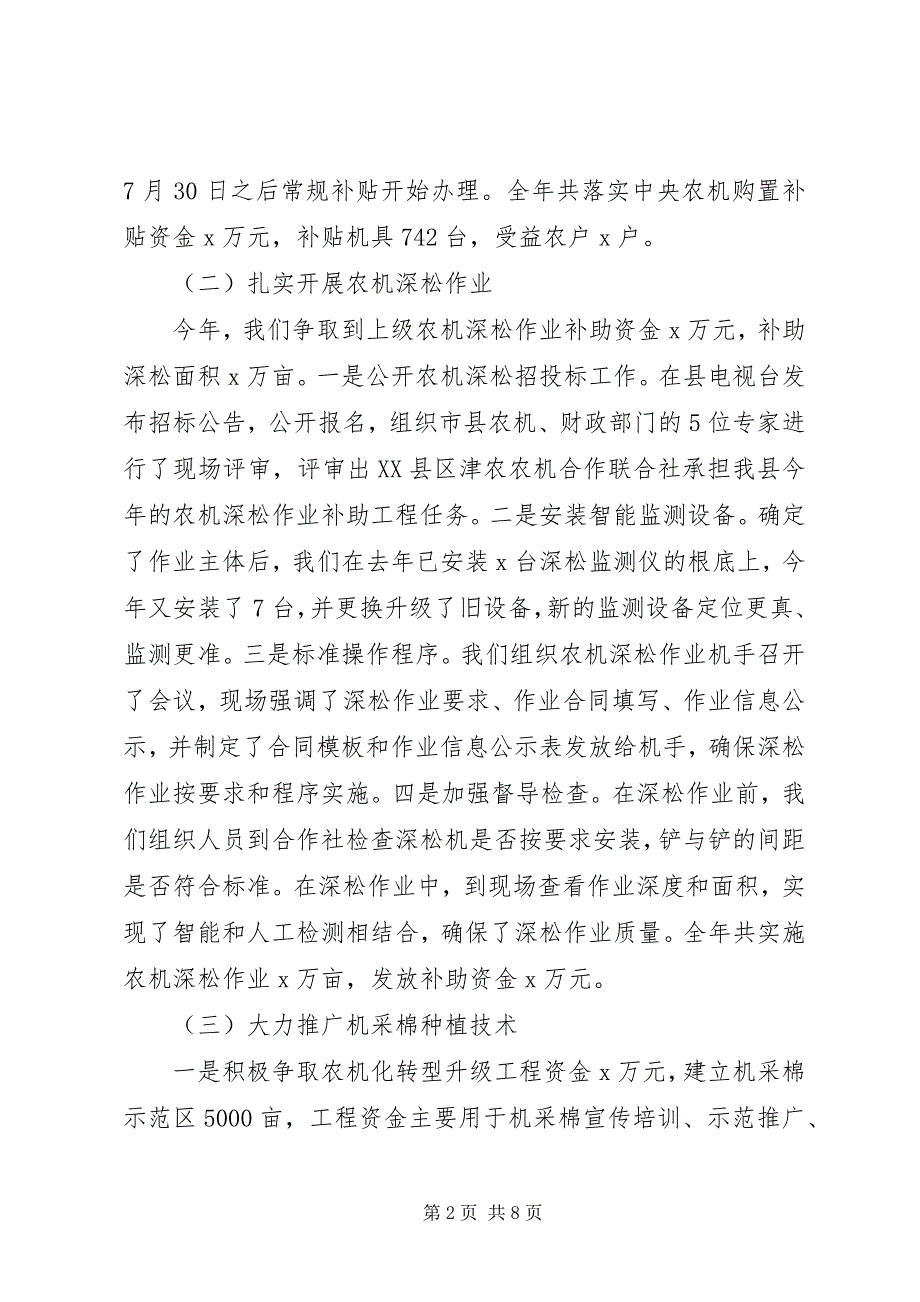 7 月 30 日之后常规补贴开始办理。全年共落实中央农机购置补
贴资金 x 万元，补贴机具 742 台，受益农户 x 户。
（二）扎实开展农机深松作业
今年，我们争取到上级农机深松作业补助资金 x 万元，补助
深松面积 x 万亩。一是公开农机深松招投标工作。在县电视台发
布招标公告，公开报名，组织市县农机、财政部门的 5 位专家进
行了现场评审，评审出 XX 县区津农农机合作联合社承担我县今
年的农机深松作业补助工程任务。二是安装智能监测设备。确定
了作业主体后，我们在去年已安装 x 台深松监测仪的根底上，今
年又安装了 7 台，并更换升级了旧设备，新的监测设备定位更真、
监测更准。三是标准操作程序。我们组织农机深松作业机手召开
了会议，现场强调了深松作业要求、作业合同填写、作业信息公
示，并制定了合同模板和作业信息公示表发放给机手，确保深松
作业按要求和程序实施。四是加强督导检查。在深松作业前，我
们组织人员到合作社检查深松机是否按要求安装，铲与铲的间距
是否符合标准。在深松作业中，到现场查看作业深度和面积，实
现了智能和人工检测相结合，确保了深松作业质量。全年共实施
农机深松作业 x 万亩，发放补助资金 x 万元。
（三）大力推广机采棉种植技术
一是积极争取农机化转型升级工程资金 x 万元，建立机采棉
示范区 5000 亩，工程资金主要用于机采棉宣传培训、示范推广、
第 2 页 共 8 页